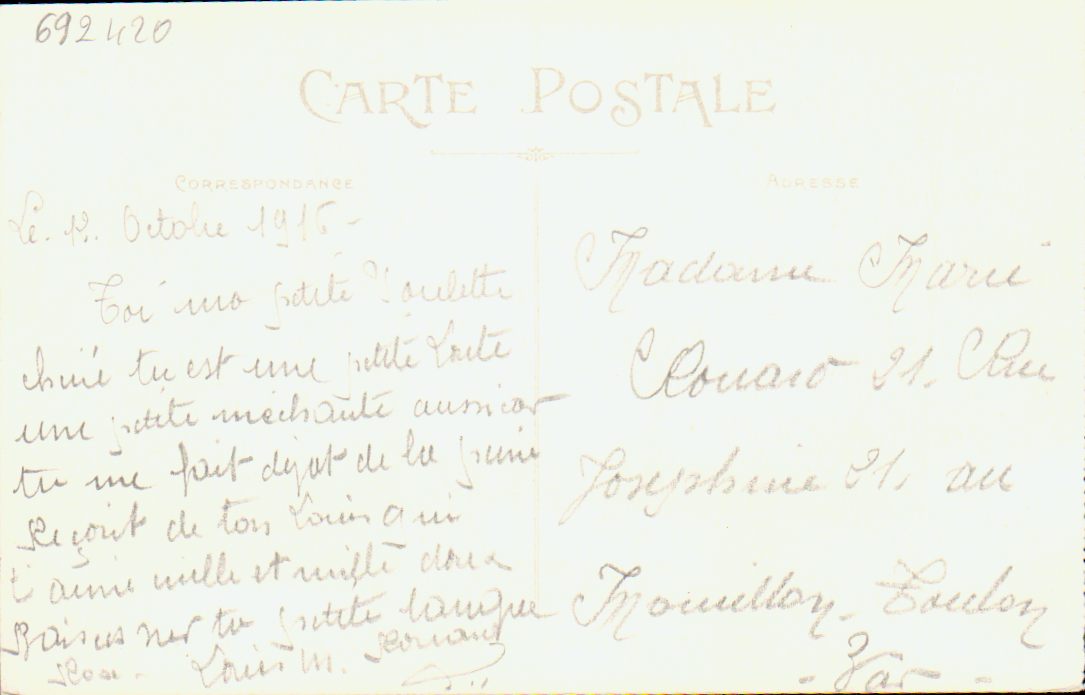 692420
CARTE POSTALE
CORRESPONDANCE
ADRESSE
Le. 12. Octobre 1916 -
Toi ma petite Poulette
chérie tu est une petite
une petite méchante aussi car
tu me fait dejat de la peine
Reçoit de ton Louis qui
t'aime mille et mille doux
Baisers sur ta petite langue
Rose - Louis m. Rouard
Madame Marie
Rouard 21. Rue
Josephine 21. au
Mourillon - Toulon
- Var -